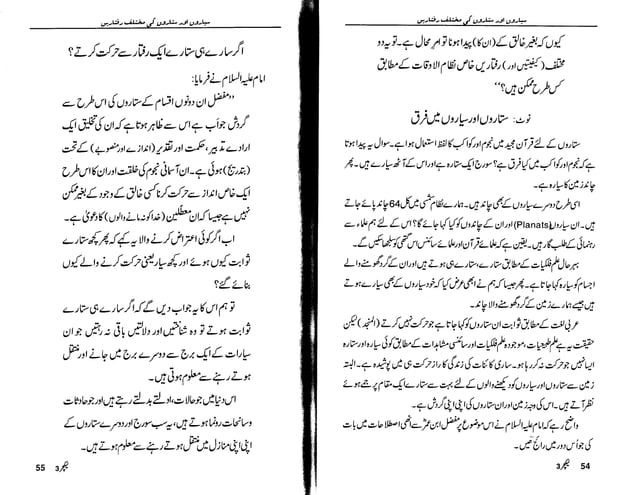 سیاروں اور ستاروں کی مختلف رفتاریں
کیوں کہ بغیر خالق کے (ان کا) پیدا ہونا تو امر محال ہے۔ تو یہ دو
مختلف (کیفیتیں اور) رفتاریں خاص نظام الاوقات کے مطابق
کس طرح ممکن ہیں؟‘‘
نوٹ: ستاروں اور سیاروں میں فرق
ستاروں کے لئے قرآن مجید میں نجوم اور کواکب کا لفظ استعمال ہوا ہے۔ سوال یہ پیدا ہوتا
ہے کہ نجوم اور کواکب میں کیا فرق ہے؟ سورج ایک ستارہ ہے اور اس کے آٹھ سیارے ہیں۔
چاند زمین کا سیارہ ہے۔
اسی طرح دوسرے سیاروں کے بھی چاند ہیں۔ ہمارے نظام شمسی میں کل 64 چاند پائے جاتے
ہیں۔ ان سیاروں (Planats) اور ان کے چاندوں کو کیا کہا جائے گا؟ اس کے لئے ہم علماء سے
رہنمائی کے طلب گار ہیں۔ یقین ہے کہ علمائے قرآن اور علمائے سائنس اس گتھی کو سلجھا سکیں گے۔
بہر حال علم فلکیات کے مطابق ستارے، ستارے ہی ہوتے ہیں اور ان کے گرد گھومنے والے
اجسام کو سیارہ کہا جاتا ہے۔ پھر جیسا کہ ہم نے ابھی عرض کیا کہ خود سیاروں کے بھی سیارے ہوتے
ہیں جیسے ہمارے زمین کے گرد گھومنے والا چاند۔
عربی لغت کے مطابق ثوابت ان ستاروں کو کہا جاتا ہے جو حرکت نہیں کرتے (المنجد) لیکن
حقیقت یہ ہے علم طبیعیات، موجودہ علم فلکیات اور سائنسی مشاہدات کے مطابق کوئی سیارہ اور ستارہ
ایسا نہیں جو حرکت نہ کر رہا ہو۔ ساری کائنات کی زندگی کا راز حرکت ہی میں پوشیدہ ہے۔ البتہ
زمین سے ستاروں اور سیاروں کو دیکھنے والوں کے لئے بہت سے ستارے ایک مقام پر تھمے ہوئے
نظر آتے ہیں۔ اس کی وجہ زمین اور ان ستاروں کی اپنی اپنی گردش ہے۔
واضح رہے کہ امام علیہ السلام نے اس موضوع پر مفضل ابن عمرؓ سے انھی اصطلاحات میں بات
کی جو اس دور میں رائج تھیں۔
54 لیکچر 3
سیاروں اور ستاروں کی مختلف رفتاریں
اگر سارے ہی ستارے ایک رفتار سے حرکت کرتے؟
امام علیہ السلام نے فرمایا:
’’مفضل ان دونوں اقسام کے ستاروں کی اس طرح سے
گردش جو اب ہے اس سے ظاہر ہوتا ہے کہ ان کی تخلیق ایک
ارادے، تدبیر، حکمت اور تقدیر (اندازے اور منصوبے) کے تحت
(بتدریج) ہوئی ہے۔ ان آسمانی نجوم کی خلقت اور ان کا اس طرح
ایک خاص انداز سے حرکت کرنا کسی خالق کے وجود کے بغیر ممکن
نہیں ہے جیسا کہ ان معطلین (خدا کو نہ ماننے والوں) کا دعویٰ ہے۔
اب اگر کوئی اعتراض کرنے والا یہ کہے کہ پھر کچھ ستارے
ثوابت کیوں ہوئے اور کچھ سیار یعنی حرکت کرنے والے کیوں
بنائے گئے؟
تو ہم اس کا یہ جواب دیں گے کہ اگر سارے ہی ستارے
ثوابت ہوتے تو وہ شناختیں اور دلالتیں باقی نہ رہتیں جو ان
سیارات کے ایک برج سے دوسرے برج میں جانے اور منتقل
ہوتے رہنے سے معلوم ہوتی ہیں۔
اس دنیا میں جو حالات، ادلتے بدلتے رہتے ہیں اور جو حادثات
و سانحات رونما ہوتے ہیں، یہ سب سورج اور دوسرے ستاروں کے
اپنی اپنی منازل میں منتقل ہوتے رہنے سے معلوم ہوتے ہیں۔
55 لیکچر 3